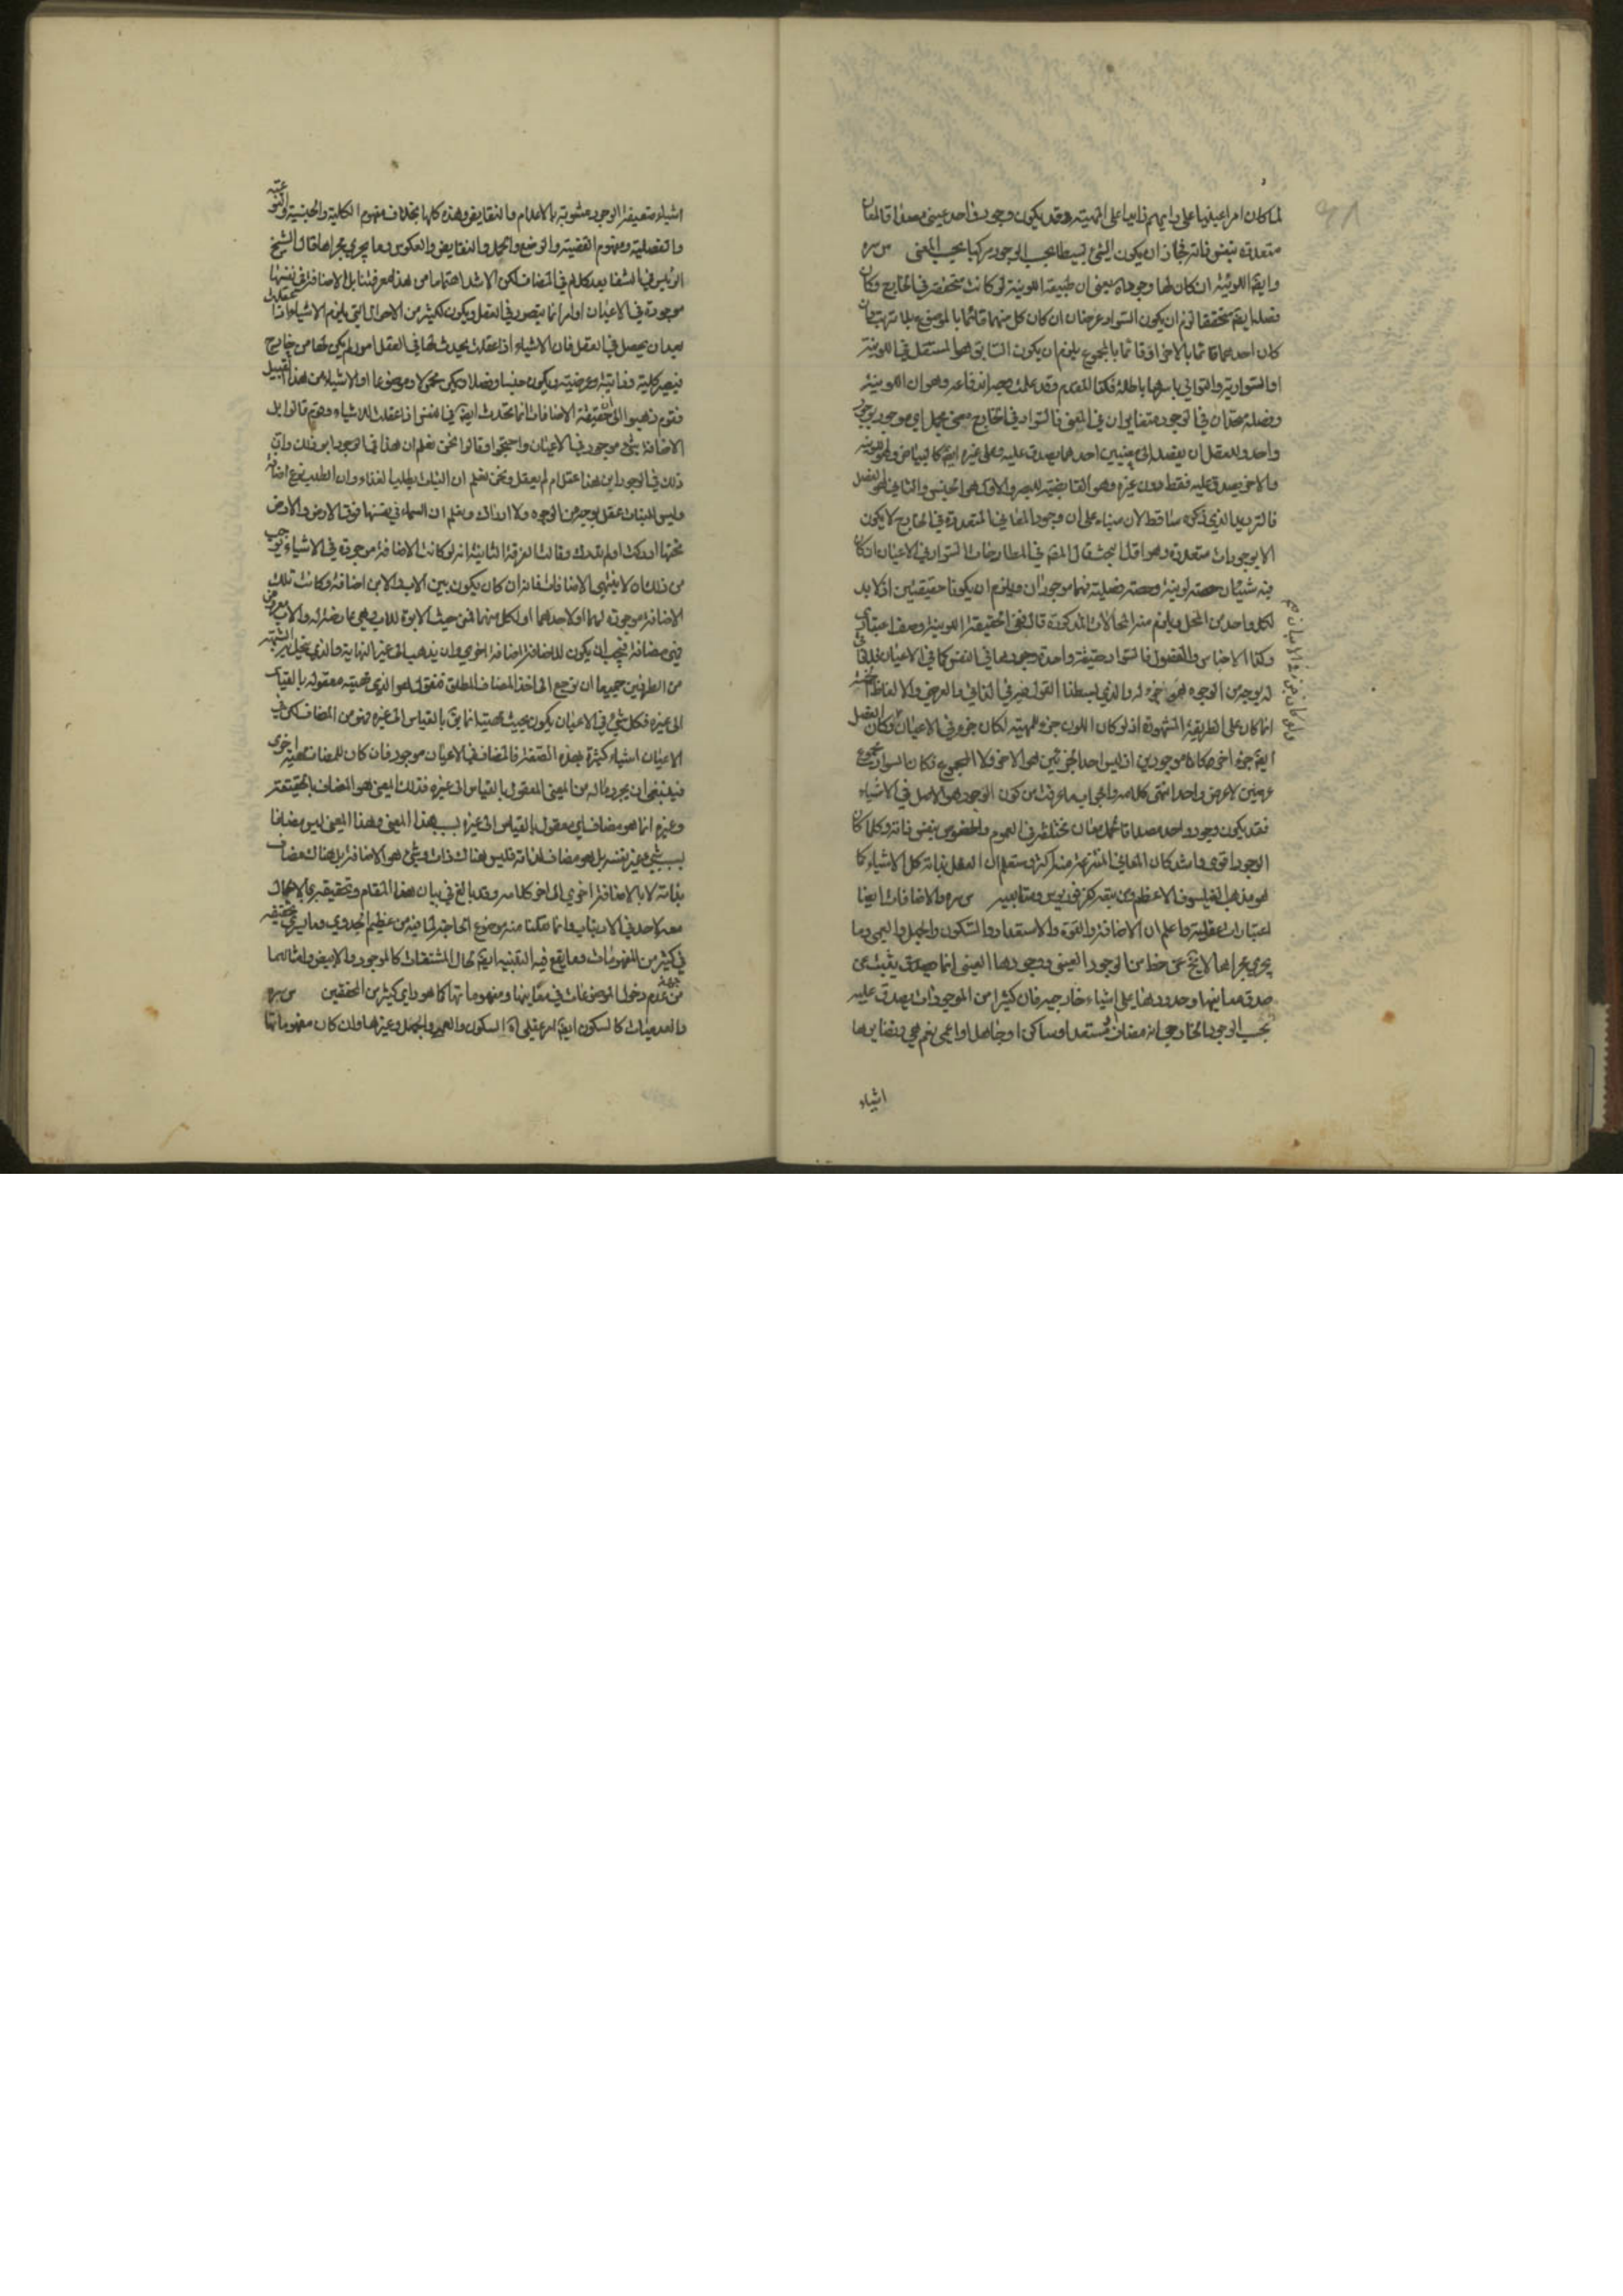 لما كان امرا عينيا على رايهم زايدا على المهية وقد يكون وجود واحد عيني مصداقا لمعان
متعددة بنفس ذاته فجاز ان يكون الشئ بسيطا بحسب الوجود مركبا بحسب المعنى س ره
وايضا اللونية ان كان لها وجود بمعنى ان طبيعة اللونية لو كانت متحققة في الخارج وكان
فصلها ايضا متحققا لزم ان يكون السواد عرضان ان كان كل منهما قائما بالموضوع بلا ترتب وان
كان احدهما قائما بالاخر او قائما بالمجموع يلزم ان يكون السابق هو المستقل في اللونية
او السوادية والتوالي باسرها باطلة فكذا المقدم وقد علمت وجه اندفاعه وهو ان اللونية
وفصله متحدان في الوجود متغايران في المعنى فالسواد في الخارج معنى مجمل اي موجود بوجود
واحد وللعقل ان يفصله الى معنيين احدهما يصدق عليه وعلى غيره ايضا كالبياض وهو اللونية
والاخر يصدق عليه فقط دون غيره وهو القابضية للبصر والاول هو الجنس والثاني هو الفصل
فالترديد الذي ذكره ساقط لان مبناه على ان وجود المعاني المتعددة في الخارج لا يكون
الا بوجودات متعددة وهو اول البحث قال المص في المطارحات السواد في الاعيان ان كان
فيه شيئان حصة لونية وحصة فصلية فهما موجودان ويلزم ان يكونا حقيقتين اذ لا بد
لكل واحد من المحل ويلزم منه المحالات المذكورة قال فهي الحقيقة اللونية وصف اعتباري
وكذا الاجناس والفصول فالسواد حقيقة واحدة وجودها في النفس كما في الاعيان فلا ذاتي
له بوجه من الوجوه فلا جزء له والذي بسطنا القول فيه في الذاتي والعرضي والالفاظ
انما كان على الطريقة المشهورة اذ لو كان اللون جزء للمهية لكان جزء في الاعيان وكان الفصل
ايضا جزء اخر وكانا موجودين اذ ليس احد الجزئين هو الاخر ولا المجموع فكان السواد مجموع
عرضين لا عرض واحد انتهى كلامه والجواب ما عرفت من كون الوجود هو الاصل في الاشياء
فقد يكون وجود واحد مصداقا لمعان مختلفة في العموم والخصوص بنفس ذاته وكلما كان
الوجود اقوى واشد كان المعاني المنتزعة منه اكثر وستعلم ان العقل بذاته كل الاشياء كما
هو مذهب الفيلسوف الاعظم ومن سبقه كفرفوريوس ومتابعيه س ره والاضافات ايضا
اعتبارات عقلية واعلم ان الاضافة والقوة والاستعداد والسكون والجهل والعمى وما
يجري مجراها لا يخ عن حظ من الوجود العيني ووجودها العيني انما هو صدق يثبت عن
صدق معانيها وحدودها على اشياء خارجية فان كثيرا من الموجودات يصدق عليه
بحسب الوجود الخارجي انه مضاف او مستعد او ساكن او جاهل او اعمى نعم هي ونظايرها
اشياء
اشياء ضعيفة الوجود مشوبة بالاعدام والنقايص وهذه كلها بخلاف مفهوم الكلية والجنسية والنوعية
والفصلية ومفهوم القضية والوضع والحمل والنقايض والعكوس وما يجري مجراها قال الشيخ
الرئيس في الشفا بعد كلام في المضاف لكن الاشد اهتماما من هذا معرفتنا بل الاضافة في نفسها
موجودة في الاعيان او امر انما يتصور في العقل ويكون ككثير من الاحوال التي يلزم الاشياء اذا عقلت
بعد ان يحصل في العقل فان الاشياء اذا عقلت يحدث لها في العقل امور لم يكن لها من خارج
فيصير كلية وذاتية وعرضية ويكون جنسا وفصلا ويكون محمولا وموضوعا او الاشياء من هذا القبيل
فقوم ذهبوا الى ان حقيقة الاضافات انما تحدث ايضا في النفس اذا عقلت الاشياء وقوم قالوا بل
الاضافة شئ موجود في الاعيان واحتجوا وقالوا نحن نعلم ان هذا في الوجود ابو ذلك وان
ذلك في الوجود ابن هذا عقل ام لم يعقل ونحن نعلم ان النبات يطلب الغذاء وان الطلب نوع اضافة
وليس للنبات عقل بوجه من الوجوه ولا ادراك ونعلم ان السماء في نفسها فوق الارض والارض
تحتها ادركت او لم تدرك وقالت الفرقة الثانية انه لو كانت الاضافة موجودة في الاشياء لوجب
من ذلك ان لا ينتهي الاضافات فانه ان كان يكون بين الاب والابن اضافة وكانت تلك
الاضافة موجودة لهما او لاحدهما او لكل منهما فمن حيث الابوة للاب وهي عارضة له والاب معروض
فهي مضافة فيجب ان يكون للاضافة اضافة اخرى وان يذهب الى غير النهاية والذي ينحل به الشبهة
من الطرفين جميعا ان نرجع الى اخذ المضاف المطلق فنقول هو الذي مهيته معقولة بالقياس
الى غيره فكل شئ في الاعيان يكون بحيث مهيته انما يق بالقياس الى غيره فهو من المضاف لكن في
الاعيان اشياء كثيرة بهذه الصفة فالمضاف في الاعيان موجود فان كان للمضاف مهية اخرى
فينبغي ان يجرد ماله من المعنى المعقول بالقياس الى غيره فذلك المعنى هو المضاف بالحقيقة
وغيره انما هو مضاف اي معقول بالقياس الى غيره بسبب هذا المعنى وهذا المعنى ليس مضافا
بسبب شئ غير نفسه بل هو مضاف لذاته فليس هناك ذات وشئ هو الاضافة بل هناك مضاف
بذاته لا بالاضافة اخرى الى اخر كلامه وقد بالغ في بيان هذا المقام وتحقيقه
في كثير من المفهومات ومما يقع فيه التنبيه ايضا حال المشتقات كالموجود والابيض وامثالهما
من جهة عدم دخول الموضوعات في معانيها ومفهوماتها كما هو راي كثير من المحققين س ره
والعدميات كالسكون ايضا امر عقلي اه السكون والعمى والجهل وغيرها وان كان مفهوماتها